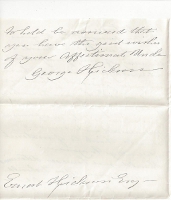 to hold be assured that
you have the good wishes
of your affectionate Uncle
George Hickson
Ernest Hickson Esq